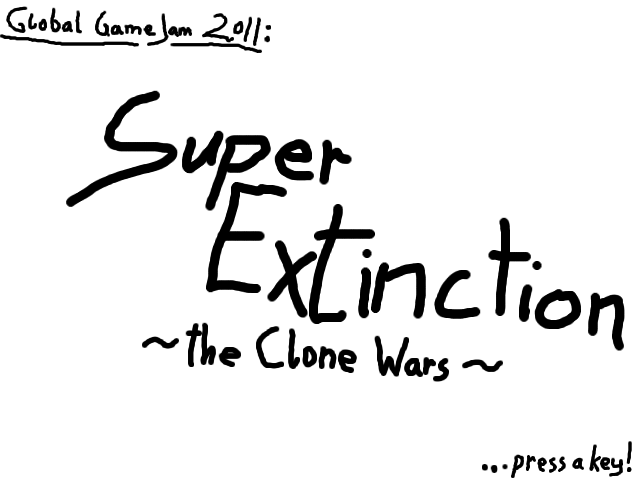 Global GameJam 2011:
Super
Extinction
~the Clone Wars~
...press a key!